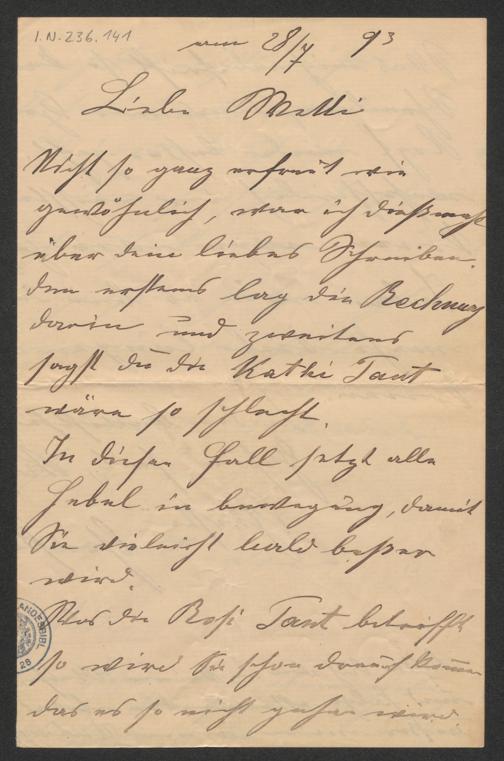 I.N. 236.141
am 28/7 93
Liebe Metti
Nicht so ganz erfreut wie
gewöhnlich, war ich dießmahl
über dein liebes Schreiben.
den erstens lag die Rechnung
darin und zweitens
sagst du die Kathi Tant
wäre so schlecht.
In diesen Fall setzt alle
Hebel in bewegung, damit
Sie vieleicht bald beßer
wird.
Was die Rosi Tant betrifft
so wird Sie schon drauf kommen
das es so nicht gehen wird.
28